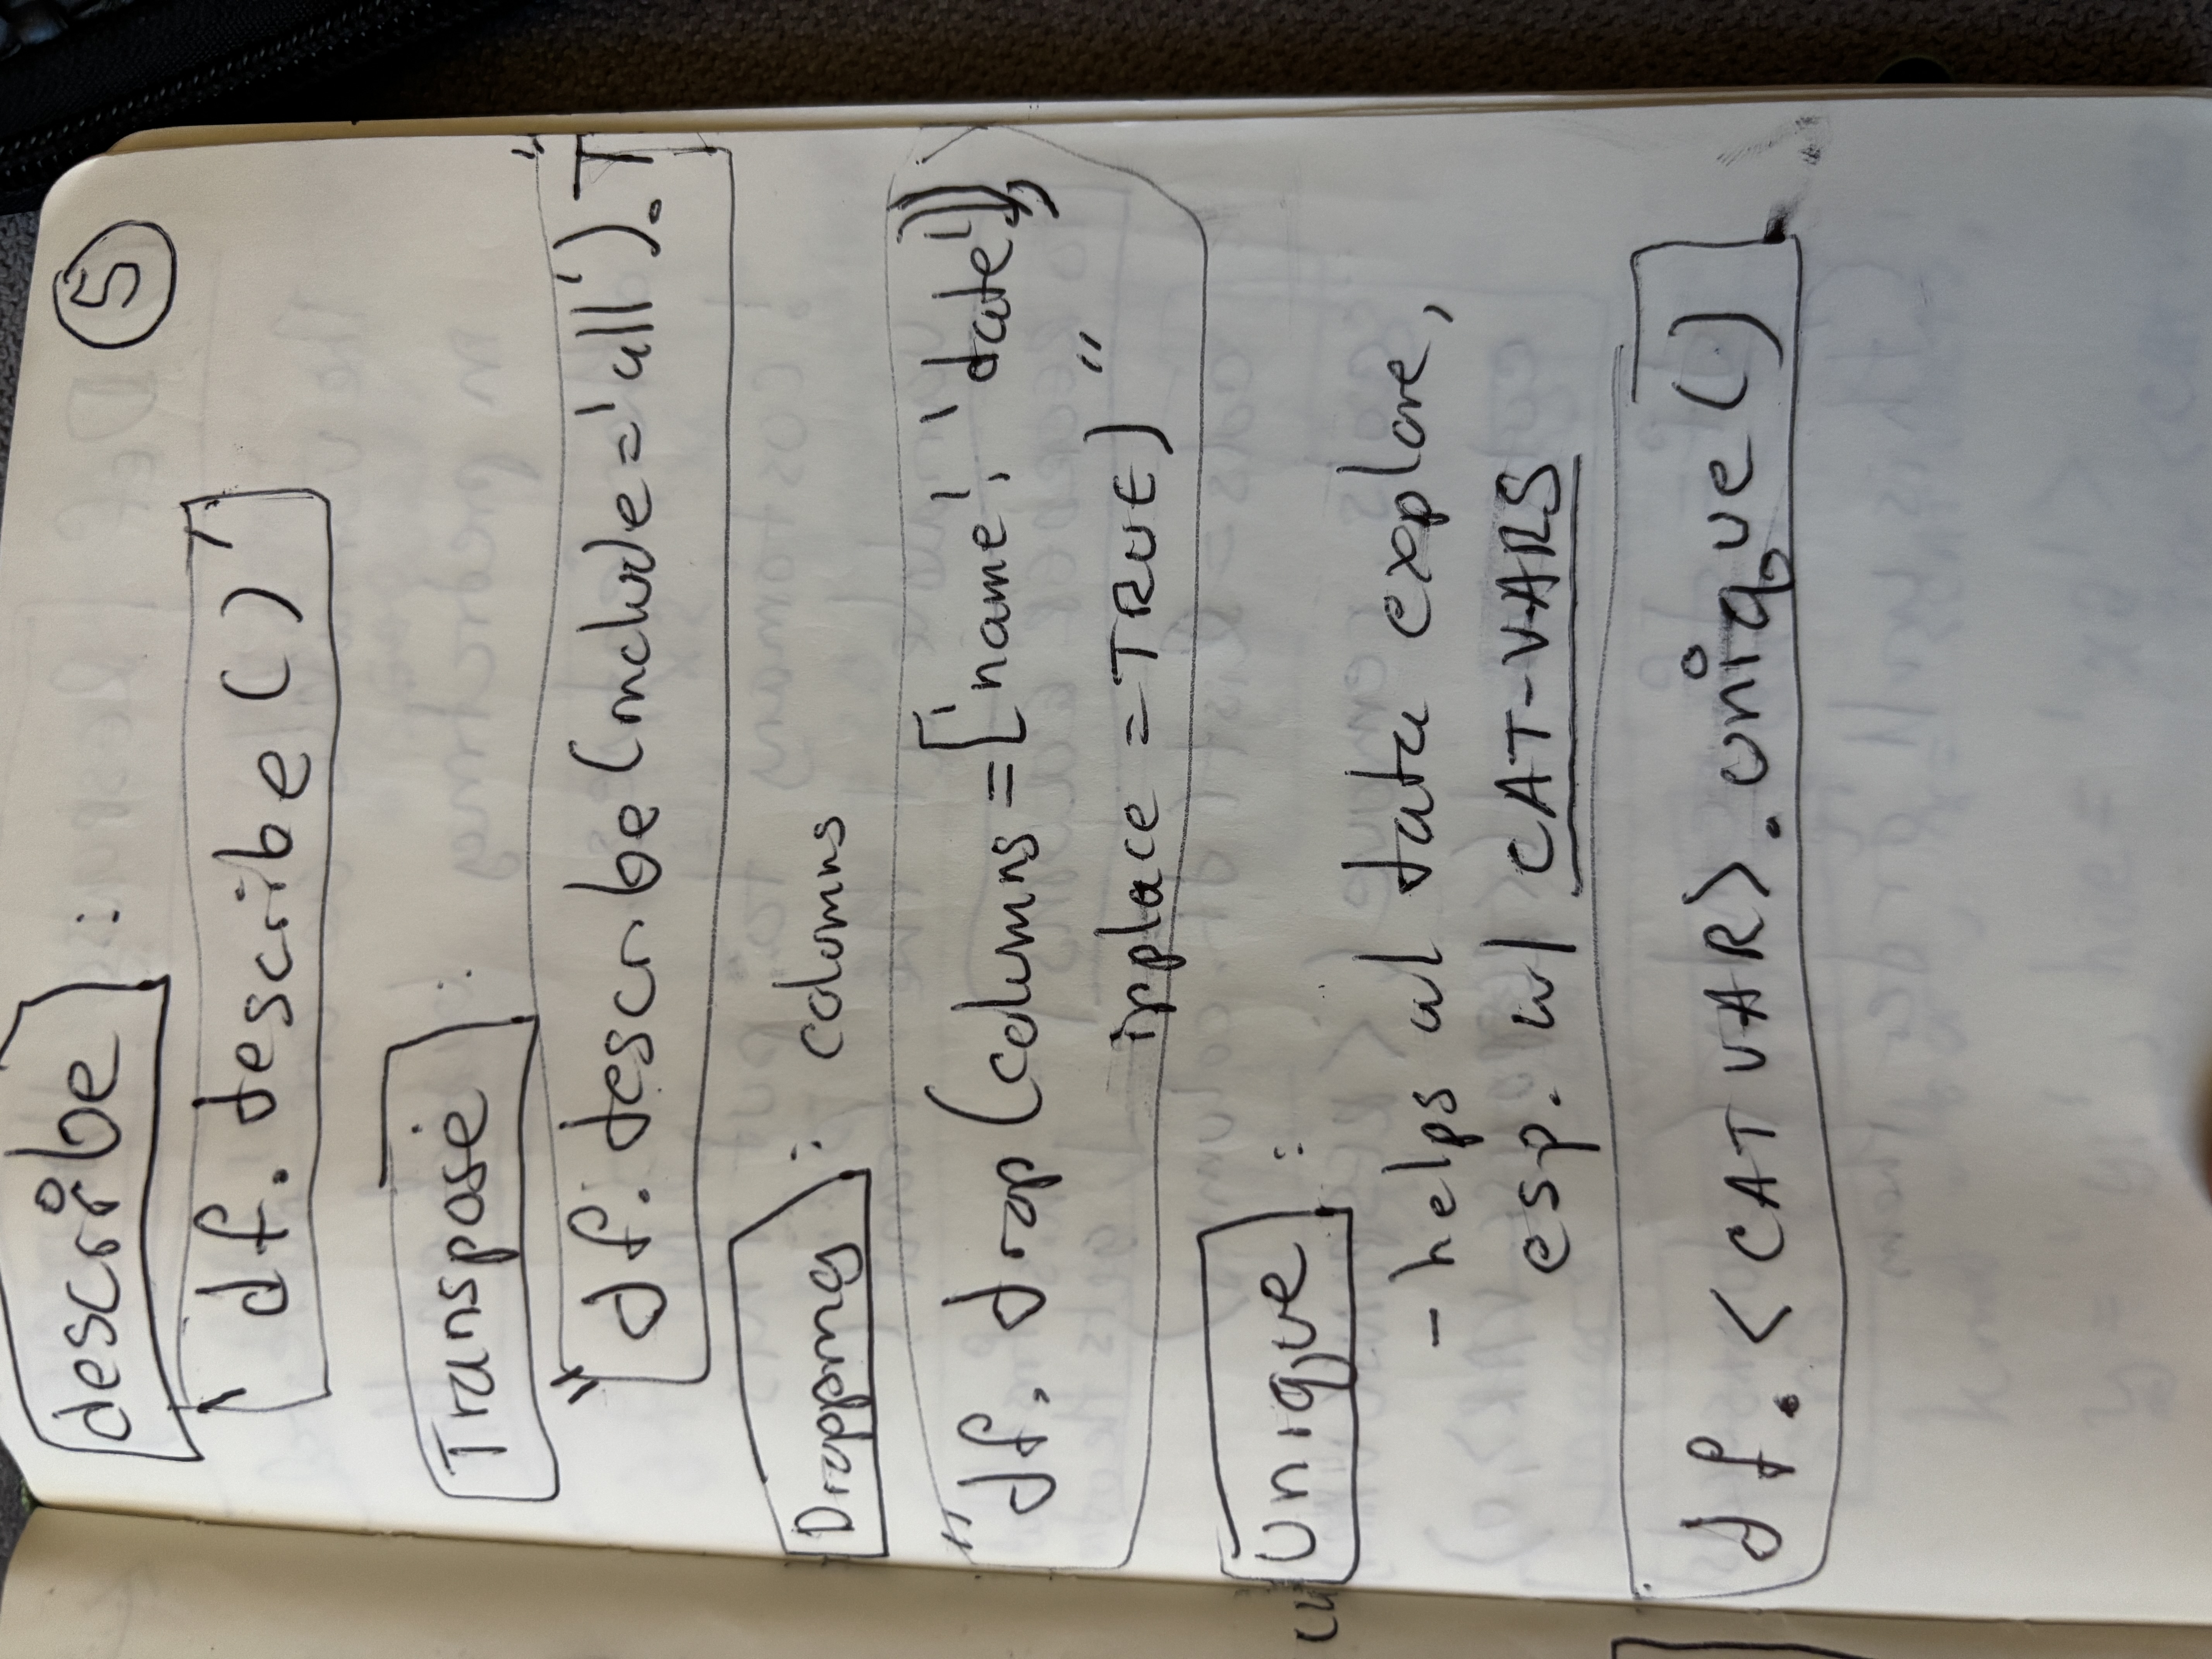 describe :
5
" df. describe ( ) "
Transpose :
"df. describe (include = 'all'). T"
Dropping : columns
"df. drop (columns = ['name', 'date'],
inplace = TRUE) "
Unique :
- helps w/ data explore,
esp. w/ CAT-VARS
df. <CAT VAR>. unique ( )